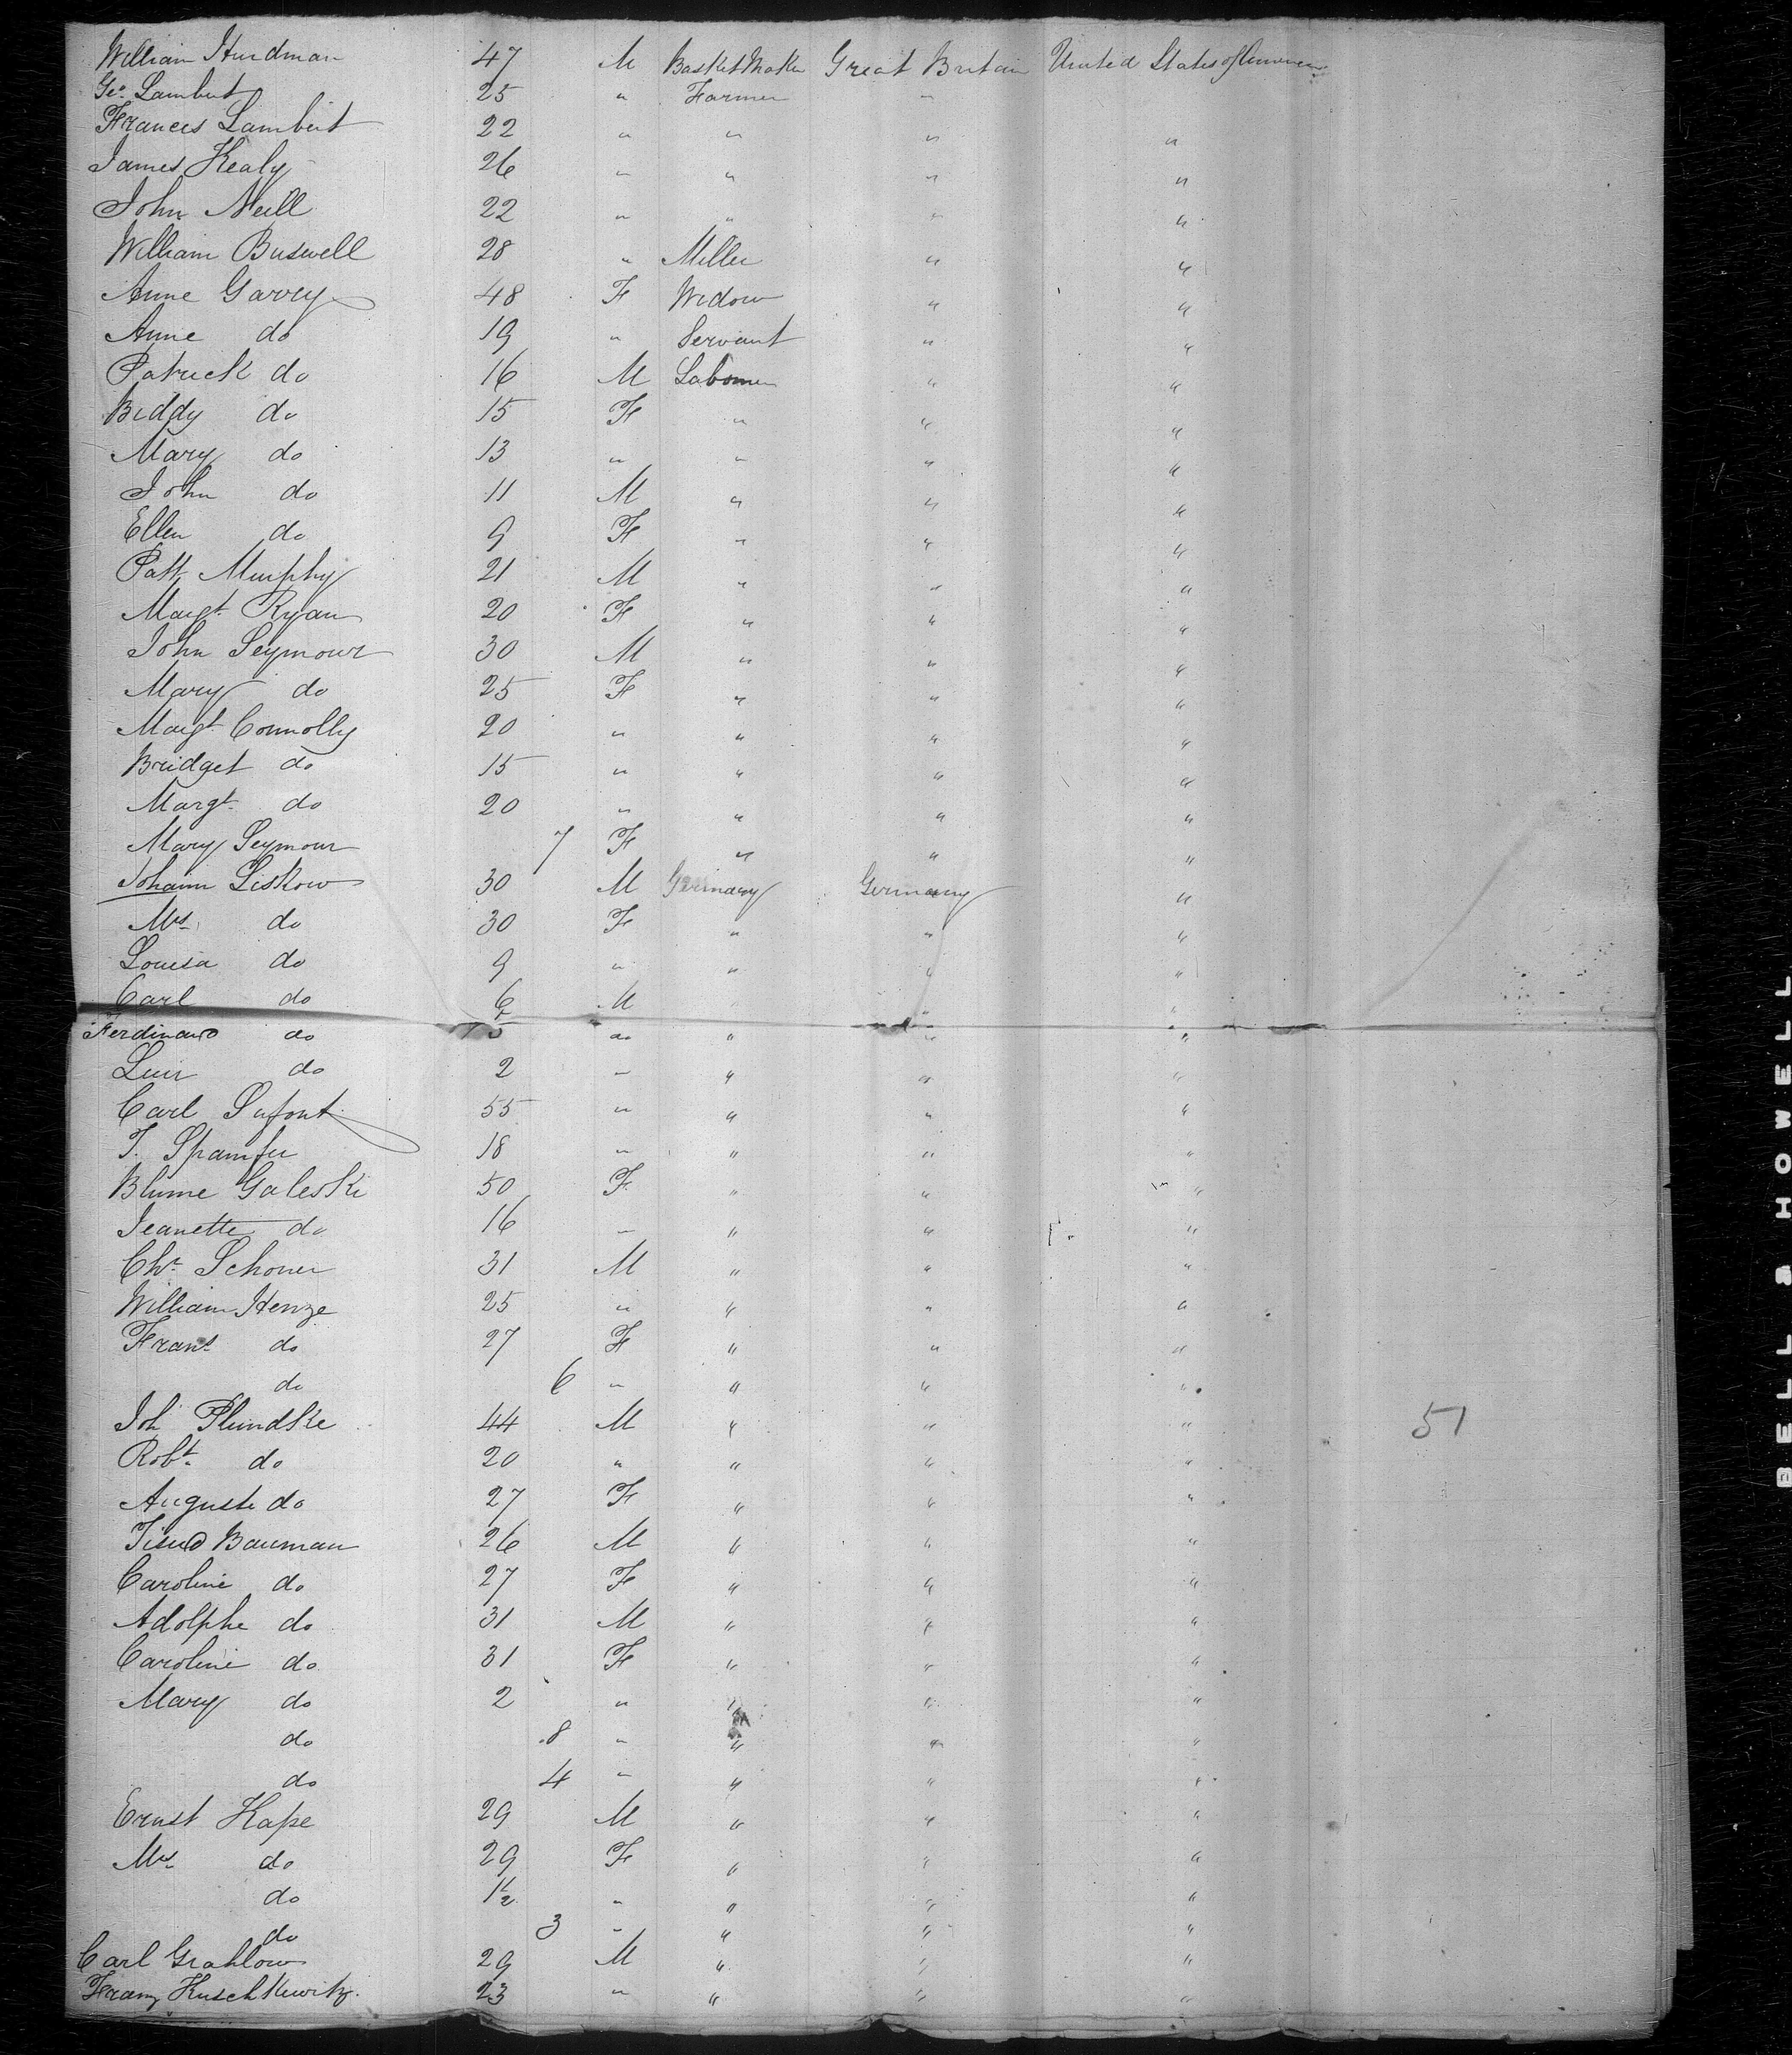 William Hurdman 47 M Basket Maker Great Britain United States of America
Geo. Lambert 25 " Farmer "
Frances Lambert 22 " " " "
James Kealy 26 " " " "
John Neill 22 " " " "
William Buswell 28 " Miller " "
Anne Garvey 48 F Widow " "
Anne do 19 " Servant " "
Patrick do 16 M Labourer " "
Biddy do 15 F " " "
Mary do 13 " " " "
John do 11 M " " "
Ellen do 9 F " " "
Patt Murphy 21 M " " "
Margt. Ryan 20 F " " "
John Seymour 30 M " " "
Mary do 25 F " " "
Margt. Connolly 20 " " " "
Bridget do 15 " " " "
Margt. do 20 " " " "
Mary Seymour 7 F " " "
Johann Liskow 30 M Germany Germany "
Mrs. do 30 F " " "
Louisa do 9 " " " "
Carl do 6 M " "
Ferdinand do 5 do " " "
do 2 " " " "
Carl 55 " " " "
T. 18 " " " "
Blume Galeski 50 F " " "
Jeanette do 16 " " " "
Chr. Schoner 31 M " " "
William Henze 25 " " " "
Frans. do 27 F " " "
do 6 " " " "
Joh Plundske 44 M " " " 51
Robt. do 20 " " " "
Auguste do 27 F " " "
Bauman 26 M " " "
Caroline do 27 F " " "
Adolphe do 31 M " " "
Caroline do 31 F " " "
Mary do 2 " " " "
do 8 " " " "
do 4 " " " "
Ernst Hape 29 M " " "
Mrs. do 29 F " " "
do 1½ " " " "
do 3 " " " "
Carl Grahlow 29 M " " "
Franz Kuschkewitz. 23 " " " "
BELL & HOWELL